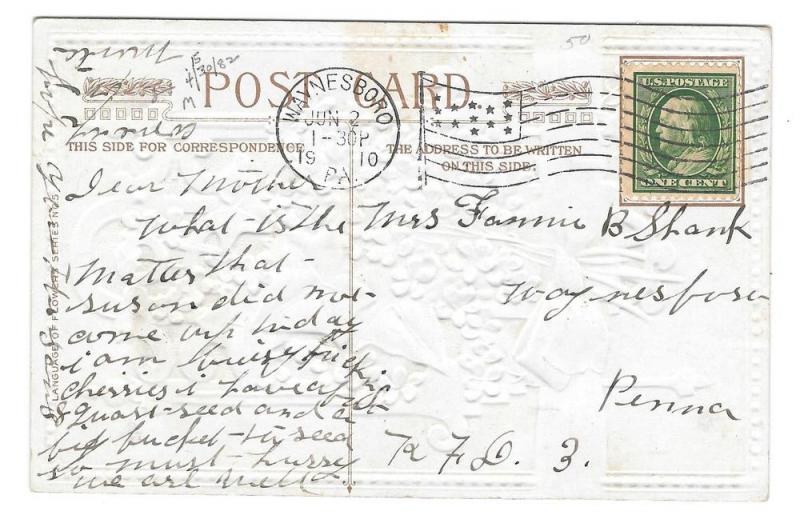 50
5/30/82
H
M
POST CARD
WAYNESBORO
JUN 2
1-30P
1910
PA.
U.S. POSTAGE
ONE CENT
THIS SIDE FOR CORRESPONDENCE
THE ADDRESS TO BE WRITTEN
ON THIS SIDE.
LANGUAGE OF FLOWERS SERIES NO 5
Dear Mother
What is the
Matter that
susan did not
come up today
i am buisy picking
cherries i have
8 quart seed and a
big bucket to seed
so must hurry
we are well
Mrs Fannie B Shank
Waynesboro
Penna
R. F. D. 3.